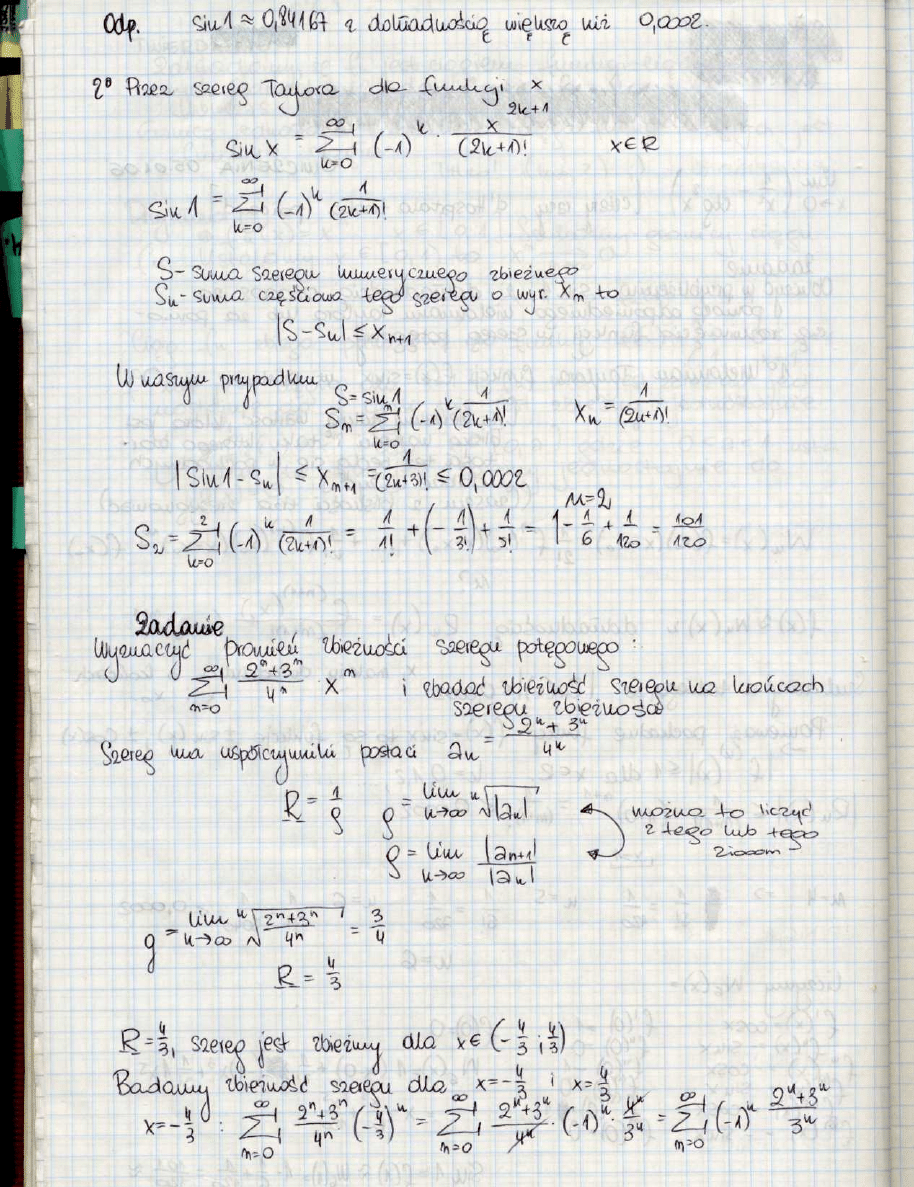 Odp. sin 1 ≈ 0,84167 z dokładnością większą niż 0,0002.
2° Przez szereg Taylora dla funkcji x
sin x = ∞∑k=0 (-1)^k · x^(2k+1)/(2k+1)! x∈R
sin 1 = ∞∑k=0 (-1)^k 1/(2k+1)!
S - suma szeregu numerycznego zbieżnego
Sn - suma częściowa tego szeregu o wyr. Xm to
|S - Sn| ≤ Xn+1
W naszym przypadku S = sin 1
Sm = m∑k=0 (-1)^k 1/(2k+1)! Xn = 1/(2n+1)!
|sin 1 - Sn| ≤ Xm+1 = 1/(2n+3)! ≤ 0,0002
n=2
S2 = 2∑k=0 (-1)^k 1/(2k+1)! = 1/1! + (-1/3!) + 1/5! = 1 - 1/6 + 1/120 = 101/120
Zadanie
Wyznaczyć promień zbieżności szeregu potęgowego :
∞∑n=0 2^n+3^n/4^n · X^n i zbadać zbieżność szeregu na krańcach
szeregu zbieżności
Szereg ma współczynniki postaci an = 2^n + 3^n/4^n
R = 1/ρ ρ = lim n→∞ n√|an| można to liczyć
z tego lub tego
ρ = lim n→∞ |an+1|/|an| ziooom
g = lim n→∞ n√(2^n+3^n/4^n) = 3/4
R = 4/3
R = 4/3, szereg jest zbieżny dla x∈(-4/3 ; 4/3)
Badamy zbieżność szeregu dla x=-4/3 i x=4/3
x=-4/3 : ∞∑n=0 2^n+3^n/4^n · (-4/3)^n = ∞∑n=0 2^n+3^n/4^n · (-1)^n · 4^n/3^n = ∞∑n=0 (-1)^n 2^n+3^n/3^n